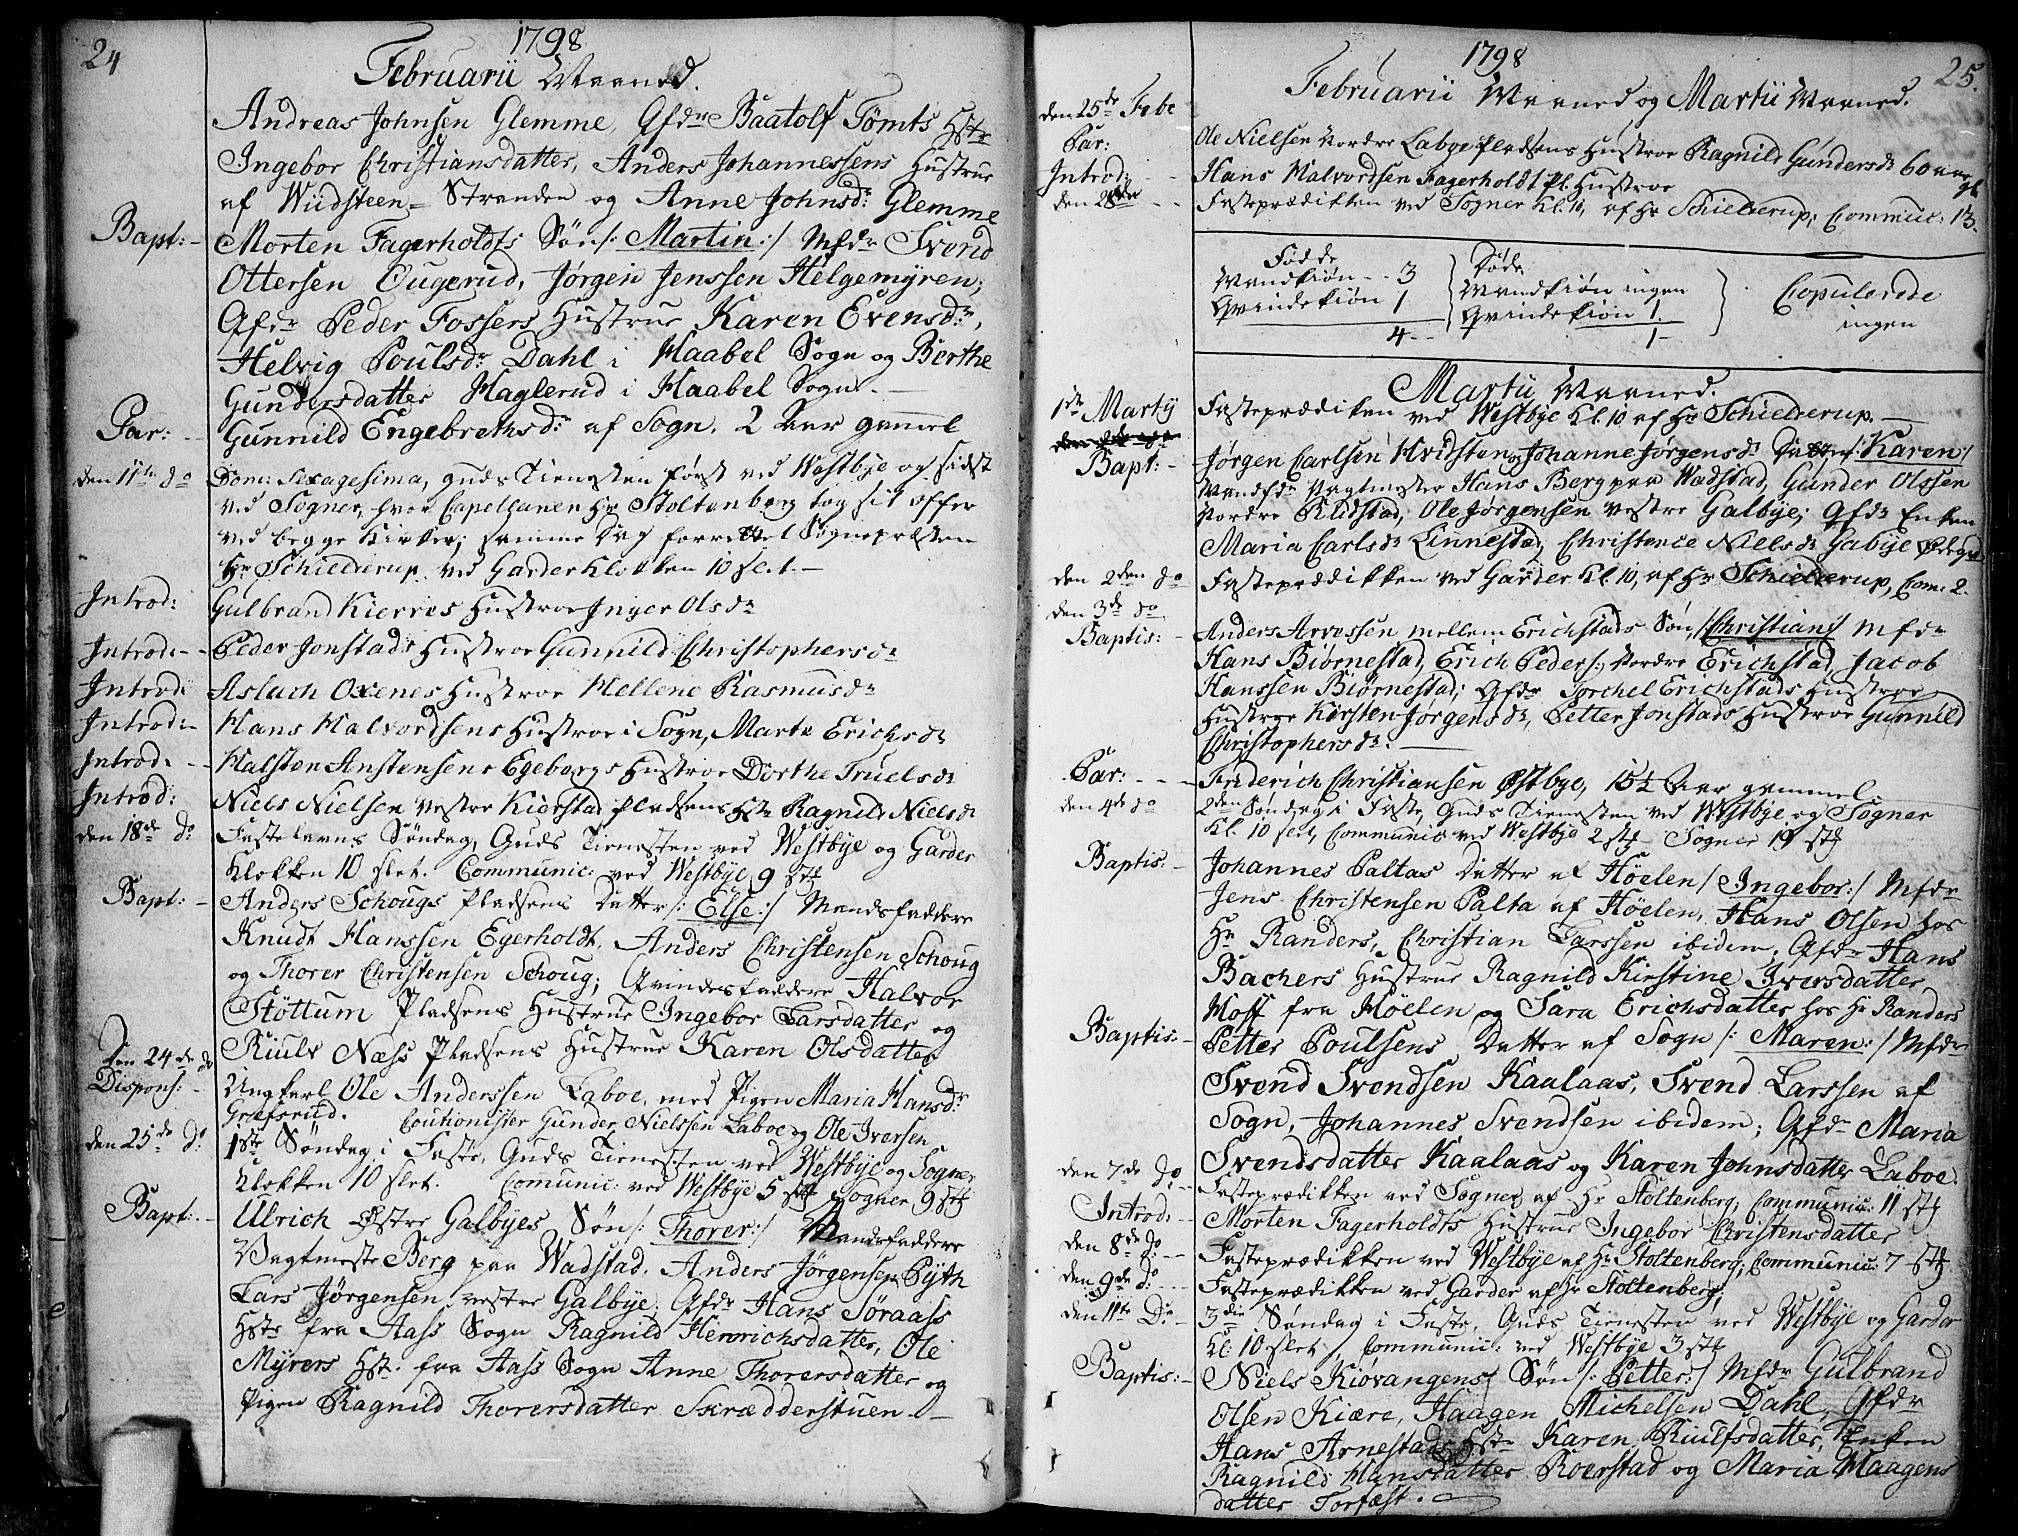 24
1798
Februarii Maaned.
Andreas Johnsen Glemme, Qfdr Baatolf Tömts Hstr
Ingebor Christiansdatter, Anders Johannessens Hustrue
af Wiidsteen- Stranden og Anne Johnsdr Glemme
Bapt: - Morten Fagerholdts Søn /: Martin :/ Mfdr Svend
Ottersen Ougerud, Jørgen Jenssen Helgemyren;
Qfdr Peder Fossers Hustrue Karen Evensdr,
Helvig Poulsdr Dahl i Haabel Sogn og Berthe
Gundersdatter Haglerud i Haabel Sogn. -
Par: - Gunnild Engebrethsdr af Sogn, 2 Aar gammel
den 11te do Dom: Sexagesima, Guds Tienesten først ved Westbye og sidst
ved Sogner, hvor Capellanen Hr Stoltenberg tog sit offer
ved begge Kirker; samme Dag forrettet Sognepræsten
Hr Schielderup ved Garder Klokken 10 slet. -
Introd: Gulbrand Kierres Hustroe Inger Olsdr
Introd: - Peder Jonstads Hustroe Gunnild Christophersdr
Introd: Aslach Oxenes Hustroe Mellene Rasmusdr
Introd: - Hans Halvordsens Hustroe i Sogn, Marte Erichsdr
Introd: - Halsten Anstensens Egebergs Hustroe Dorthe Truelsdr
Introd: Niels Nielsen vestre Kierstad Pladsens Hstr Ragnild Nielsdr
den 18de do Fastelavns Søndag, Guds Tienesten ved Westbye og Garder
Klokken 10 slet. Communic: ved Westbye 9 stk
Bapt: - Anders Schougs Pladsens Datter /: Else :/ Mandsfaddere
Knudt Hanssen Egerholdt, Anders Christensen Schoug
og Thorer Christensen Schoug; Qvindesfaddere Halvor
Stöttum Pladsens Hustrue Ingebor Larsdatter og
Riulv Næss Pladsens Hustrue Karen Olsdatter
Den 24de do
Dispens: - Ungkarl Ole Anderssen Laboe, med Pigen Maria Hansdr
Grefsrud. Coutionister Gunder Nielssen Laboe og Ole Iversen
den 25de do 1ste Søndag i Faste, Guds Tienesten ved Westbye og Sogner
Klokken 10 slet. Comunic: ved Westbye 5 stk Sogner 9 stk
Bapt: - Ulrich Østre Galbyes Søn /: Thorer :/ Mandsfaddere
Vagtmester Berg paa Wadstad, Anders Jørgensen Pyth
Lars Jørgensen vestre Galbye; Qfdr Hans Søraass
Hstr fra Aass Sogn Ragnild Henrichsdatter, Ole
Myrers Hst. fra Aass Sogn Anne Thorersdatter og
Pigen Ragnild Thorersdatter Skrædderstuen. -
1798
25.
Februarii Maaned og Martii Maaned.
den 25de Febr
Par: Ole Nielsen Nordre Labye Pladsens Hustroe Ragnild Gundersdr 60 aar gl
Introd: - Hans Halvordsen Fagerholdt Pl. Hustroe
den 28de - - Fasteprædiken ved Sogner Kl. 10, af Hr Schielderup; Commuic: 13.
Fødde
Mandkiøn - - 3
Qvindekiøn 1
4 - -
Døde
Mandkiøn ingen
Qvindekiøn 1.
1 -
Copulerede
ingen
Martii Maaned.
1de Martÿ Fasteprædiken ved Westbye Kl. 10 af Hr Schielderup. -
Bapt: - Jørgen Carlsen Hvidsten og Johanne Jørgensdr Datter /: Karen :/
Mandfdr Vagtmester Hans Berg paa Wadstad, Gunder Olssen
Nordre Rudstad, Ole Jørgensen vestre Galbye; Qfdr Enken
Maria Carlsdr Linnestad, Christence Nielsdr Gabije Ødegrd
den 2den do Fasteprædikken ved Garder Kl. 10, af Hr Schielderup, Com: 2.
den 3de do
Baptis: - Anders Arvessen mellem Erichstads Søn /: Christian :/ Mfdr
Hans Biørnestad, Erich Peders: Nordre Erichstad, Jacob
Hanssen Biørnestad; Qfdr Torchel Erichstads Hustroe
Hustroe Kirsten Jørgensdr, Petter Jonstads Hustroe Gunnild
Christophersdr. -
Par: - - Friderich Christiansen Østbye, 15½ Aar gammel.
den 4de do 2den Søndag i Faste, Guds Tienesten ved Westbye og Sogner
Kl. 10 slet, Communic ved Westbye 2 stk - Sogner 19 stk
Baptis: - Johannes Paltas Datter af Höelen /: Ingebor :/ Mfdr
Jens Christensen Palta af Höelen, Hans Olsen hos
Hr Randers, Christian Larssen ibidem; Qfdr Hans
Bachers Hustrue Ragnild Kirstine Iversdatter,
Moss fra Höelen og Sara Erichsdatter hos Hr Randers
Baptis: - Petter Poulsens Datter af Sogn /: Maren :/ Mfdr
Svend Svendsen Kaalaas, Svend Larssen af
Sogn, Johannes Svendsen ibidem; Qfdr Maria
Svendsdatter Kaalaas og Karen Johnsdatter Laboe
den 7de do Fasteprædikken ved Sogner af Hr Stoltenberg, Communic: 11 stk
Introd: - Morten Fagerholdts Hustrue Ingebor Christensdatter
den 8de do - Fasteprædikken ved Westbye af Hr Stoltenberg; Communic: 7 stk
den 9de do Fasteprædikken ved Garder af Hr Stoltenberg;
den 11te Do 3die Søndag i Faste, Guds Tienesten ved Westbye og Garder
Kl: 10 slet, Communic: ved Westbye 3 stk
Baptis: - Niels Kiøvangens Søn /: Petter :/ Mfdr Gulbrand
Olsen Kiære, Haagen Michelsen Dahl, Qfdr
Hans Arnestads Hstr Karen Riulfsdatter, Enken
Ragnild Hansdatter Roerstad og Maria Haagens
datter Torfæst. -